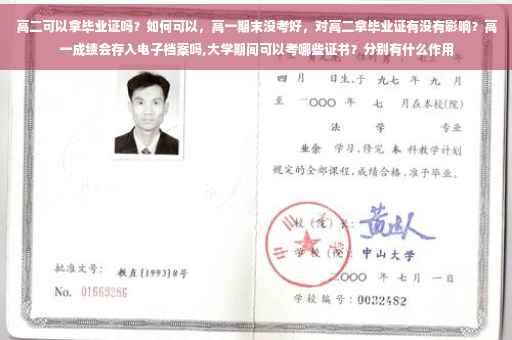 高二可以拿毕业证吗？如何可以，高一期末没考好，对高二拿毕业证有没有影响？高
一成绩会存入电子档案吗,大学期间可以考哪些证书？分别有什么作用
四 月 日生,于 一九九七 年 九 月
至 二〇〇〇 年 七 月在本校(院)
法 学 专业
业余 学习,修完 本 科教学计划
规定的全部课程,成绩合格,准予毕业。
校(院)长:
学 校(院): 中山大学
二〇〇〇 年 七 月 一 日
批准文号: 教直(1993)8号
No. 01669286
学校编号: 0032482